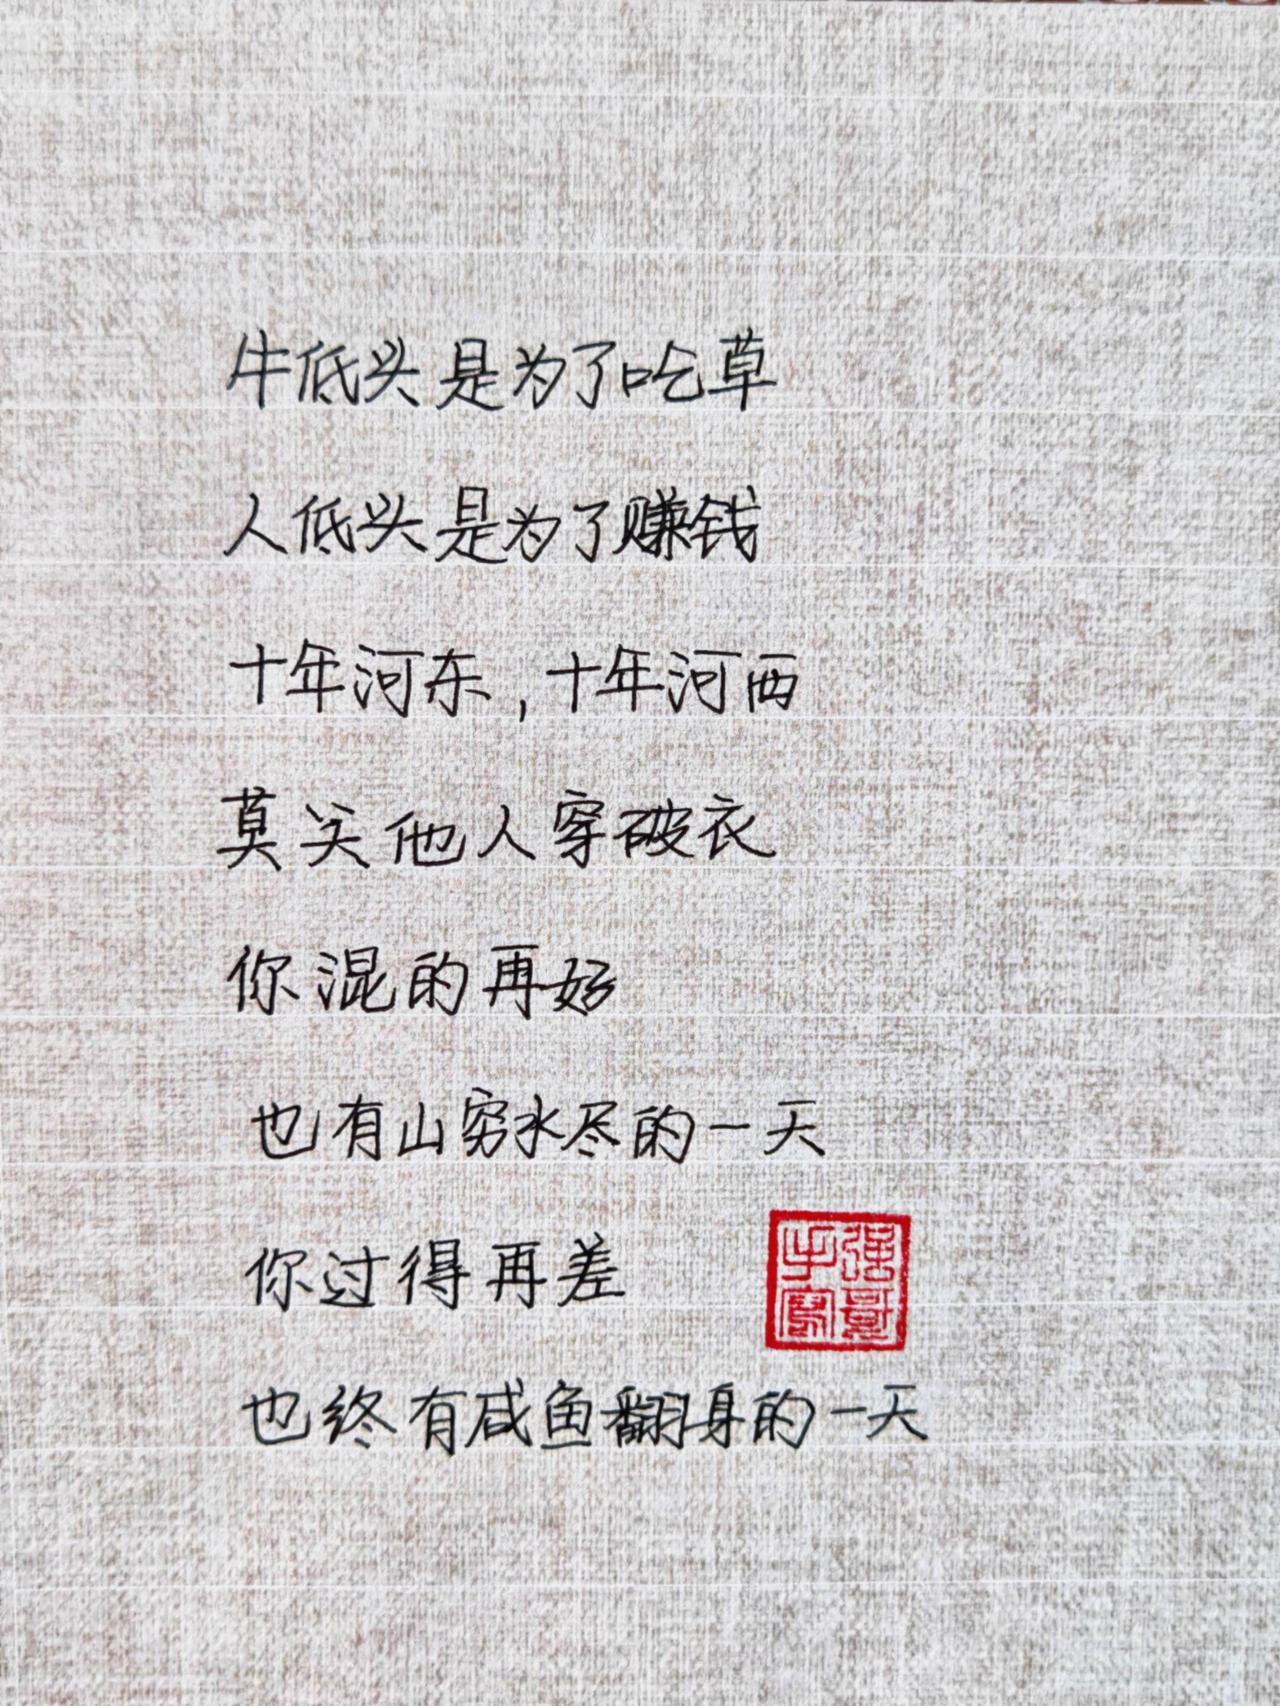 牛低头是为了吃草
人低头是为了赚钱
十年河东,十年河西
莫笑他人穿破衣
你混的再好
也有山穷水尽的一天
你过得再差
强哥手写
也终有咸鱼翻身的一天